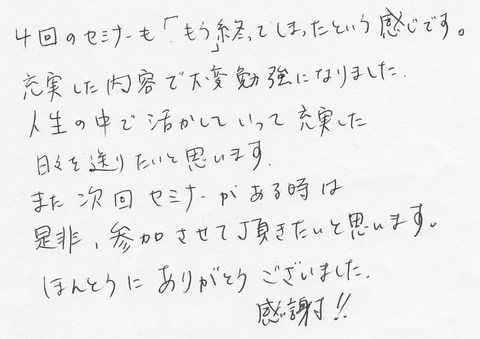 4回のセミナーも「もう」終ってしまったという感じです。
充実した内容で大変勉強になりました.
人生の中で活かしていって充実した
日々を送りたいと思います.
また次回セミナーがある時は
是非、参加させて頂きたいと思います。
ほんとうにありがとうございました.
感謝!!